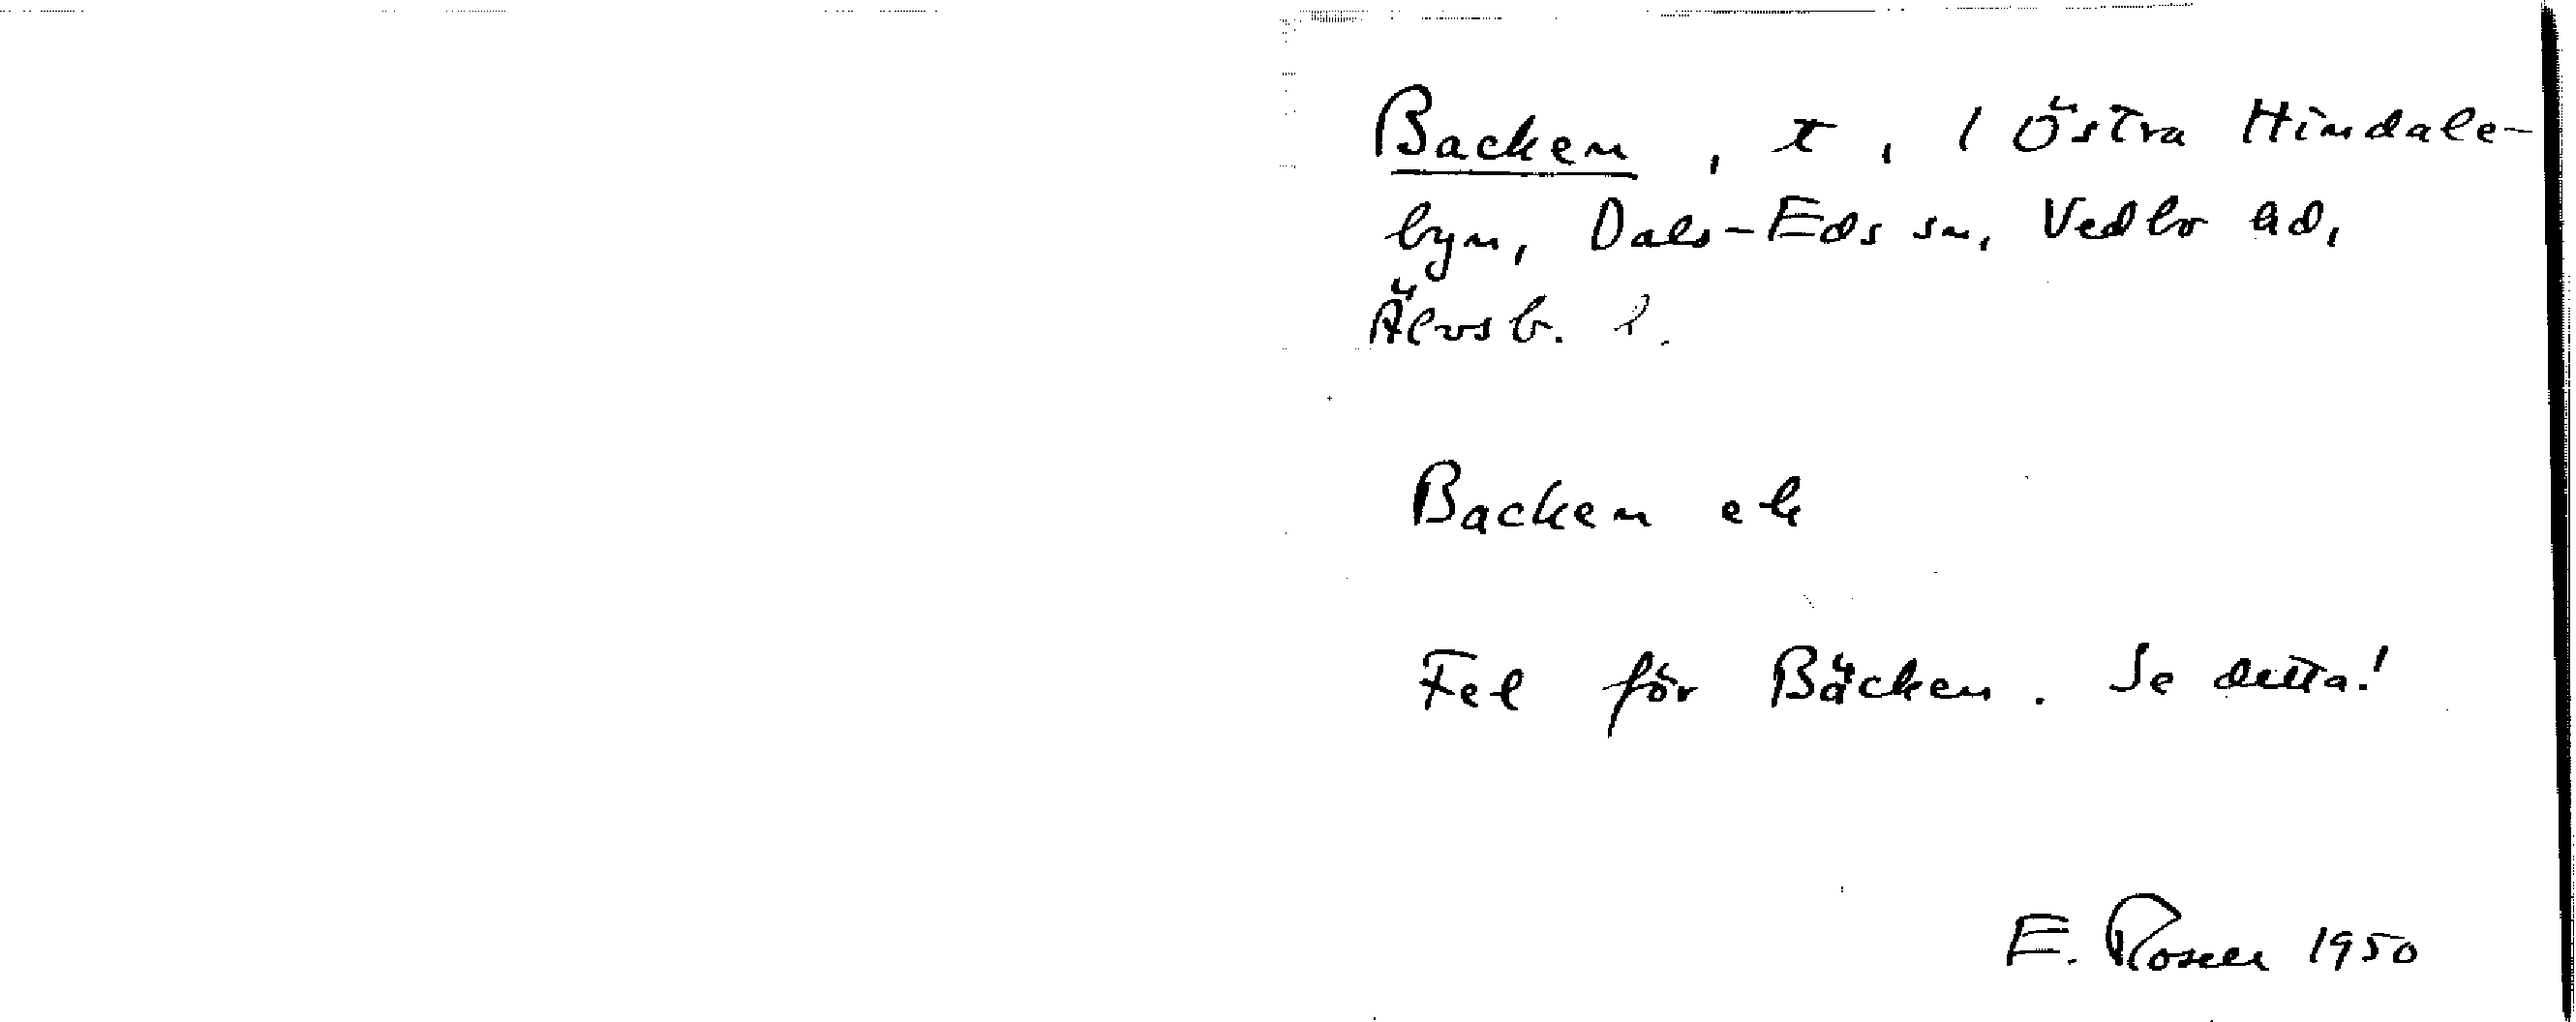 Backen, t, i Östra Hindale-
byn, Dals-Eds sn, Vedbo hd,
Älvsb. l.
Backen ek
Fel för Bäcken. Se detta!
E. Rosell 1950